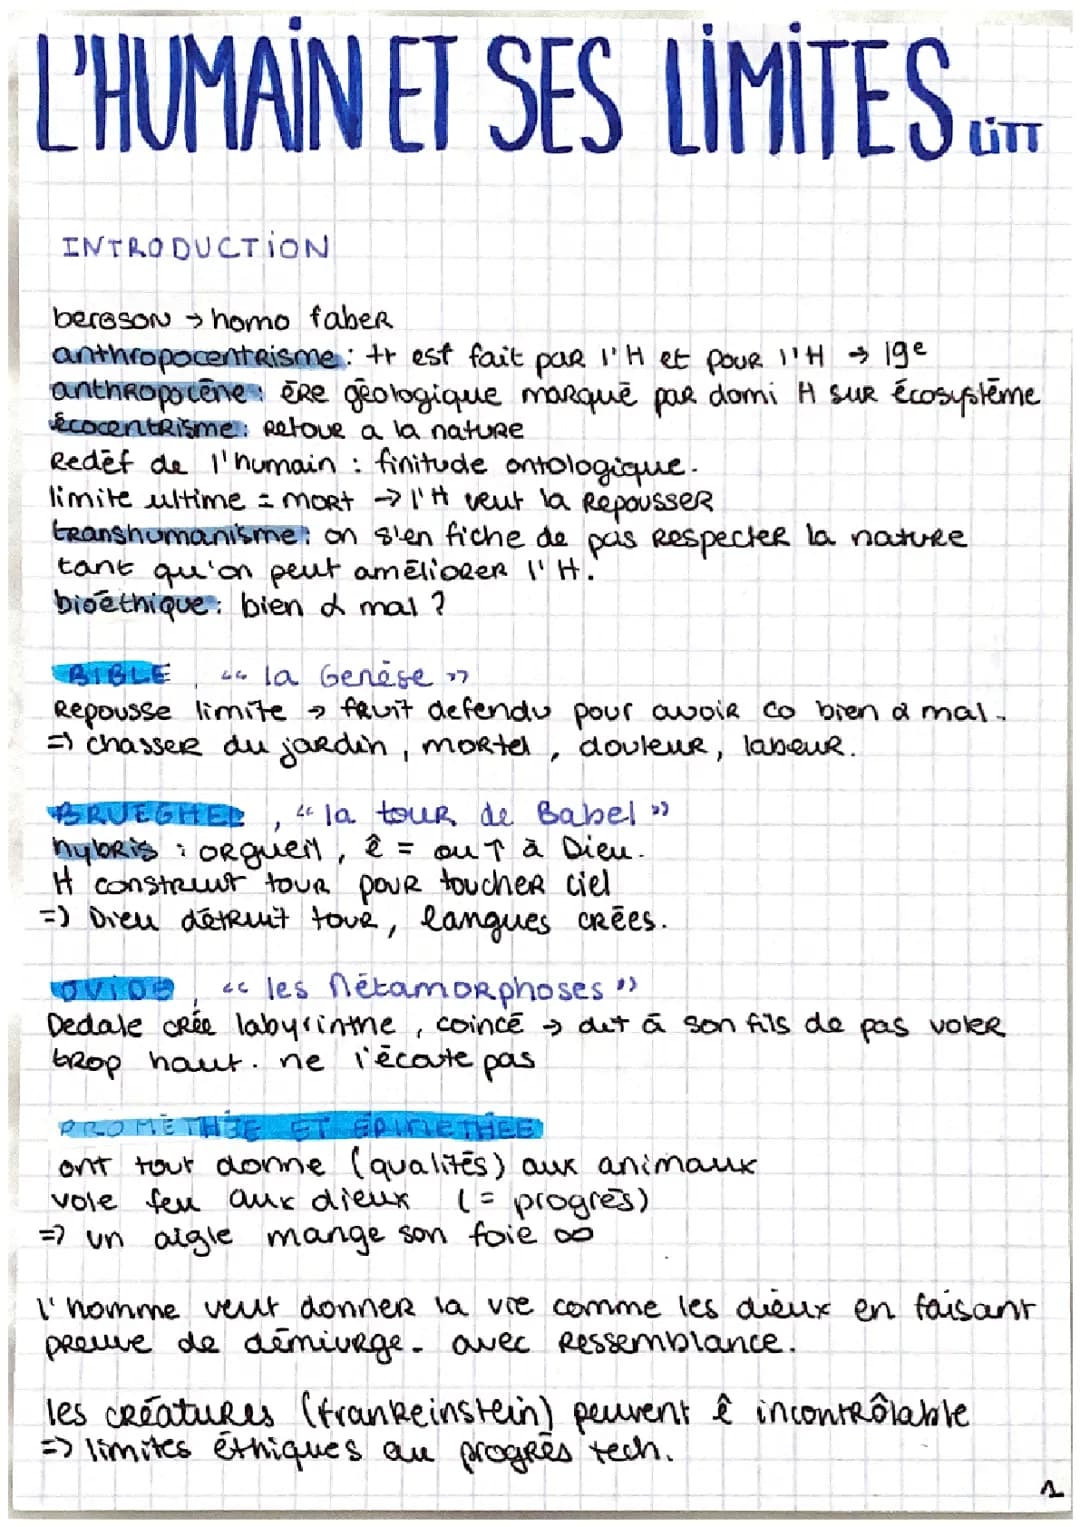 L'HUMAIN ET SES LIMITES LITT
INTRODUCTION
bergson → homo faber
anthropocentrisme : tt est fait par l'H et pour l'H → 19e
anthropocène : ère géologique marqué par domi H sur écosystème
écocentrisme : retour a la nature
Redéf de l'humain : finitude ontologique.
limite ultime = mort → l'H veut la repousser
transhumanisme : on s'en fiche de pas respecter la nature
tant qu'on peut améliorer l'H.
bioéthique : bien & mal ?
BIBLE, "la Genèse"
Repousse limite → fruit defendu pour avoir co bien & mal.
=> chasser du jardin, mortel, douleur, labeur.
BRUEGHEL, "la tour de Babel"
hybris : orgueil, ê = ou ↑ à Dieu.
H construit tour pour toucher ciel
=> Dieu détruit tour, langues crées.
OVIDE, "les Métamorphoses"
Dedale crée labyrinthe, coincé → dit à son fils de pas voler
trop haut. ne l'écoute pas
PROMÉTHÉE ET ÉPIMÉTHÉE
ont tout donne (qualités) aux animaux
vole feu aux dieux (= progrès)
=> un aigle mange son foie ∞
l'homme veut donner la vie comme les dieux en faisant
preuve de démiurge. avec ressemblance.
les créatures (frankeinstein) peuvent ê incontrôlable
=> limites éthiques au progrès tech.
1